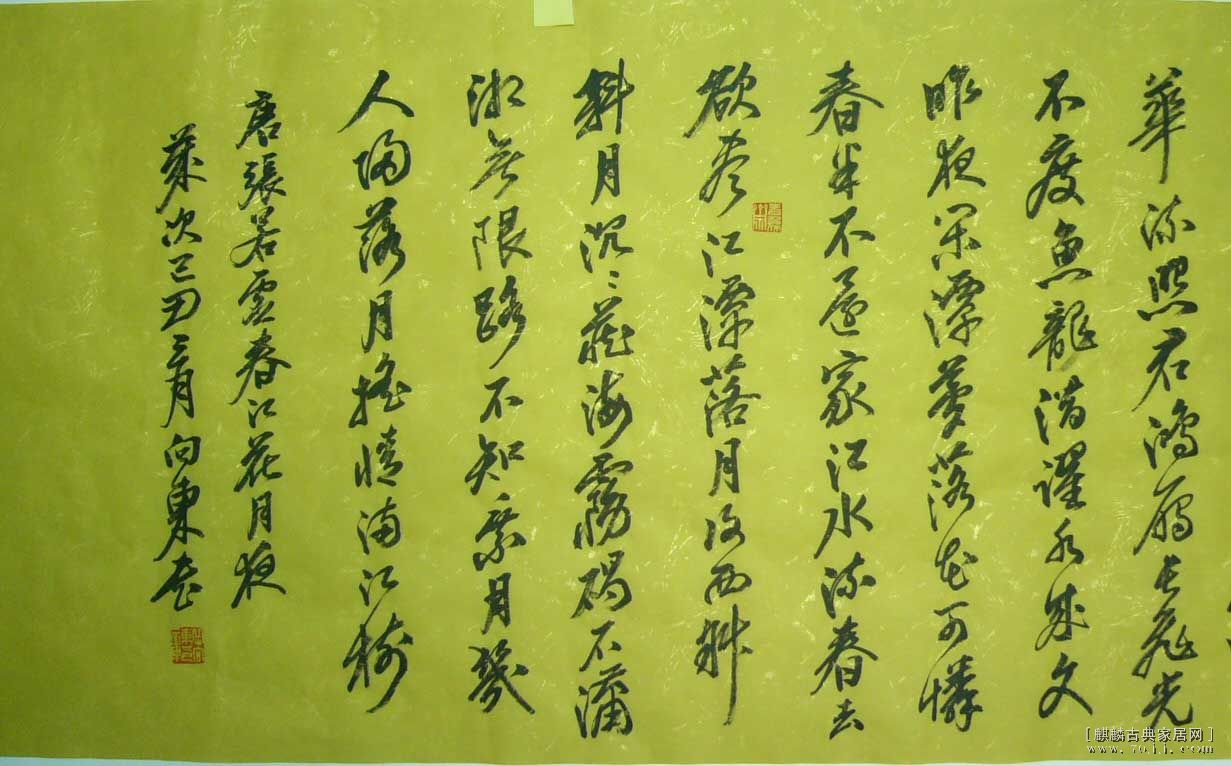 華流照君鴻雁長飛光
不度魚龍潛躍水成文
昨夜閑潭夢落花可憐
春半不還家江水流春去
欲盡江潭落月復西斜
斜月沉〻藏海霧碣石瀟
湘無限路不知乘月幾
人歸落月搖情滿江樹
唐張若虛春江花月夜
歲次己丑三月向東書
[麒麟古典家居网]